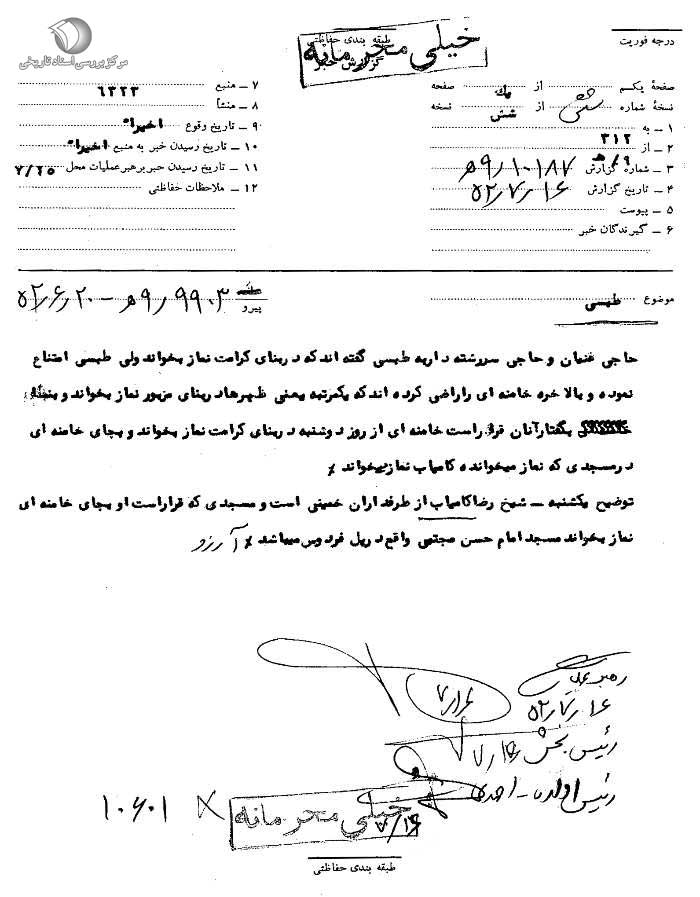 مرکز بررسی اسناد تاریخی
طبقه بندی حفاظتی
خیلی محرمانه
گزارش خبر
درجه فوریت
صفحهٔ یکم از یک صفحه
نسخهٔ شماره شش از شش نسخه
۱ ــ به ۳۱۲
۲ ــ از ۹/ﻫ
۳ ــ شماره گزارش ۱۰۱۸۷/ﻫ۹
۴ ــ تاریخ گزارش ۵۲/۷/۱۶
۵ ــ پیوست
۶ ــ گیرندگان خبر
۷ ــ منبع ۶۳۲۳
۸ ــ منشأ
۹ ــ تاریخ وقوع اخیرا"
۱۰ ــ تاریخ رسیدن خبر به منبع اخیرا"
۱۱ ــ تاریخ رسیدن خبر برهبر عملیات محل ۷/۱۵
۱۲ ــ ملاحظات حفاظتی
موضوع طبسی
پیرو ۹۹۰۳/ﻫ۹ - ۵۲/۶/۲۰
حاجی غنیان و حاجی سررشته دار به طبسی گفته اند که در بنای کرامت نماز بخواند ولی طبسی امتناع
نموده و بالا خره خامنه ای را راضی کرده اند که یکمرتبه یعنی ظهرها در بنای مزبور نماز بخواند و بنا
بگفتار آنان قرار است خامنه ای از روز دوشنبه در بنای کرامت نماز بخواند و بجای خامنه ای
در مسجدی که نماز میخوانده کامیاب نماز میخواند ٪
توضیح یکشنبه ــ شیخ رضا کامیاب از طرفداران خمینی است و مسجدی که قرار است او بجای خامنه ای
نماز بخواند مسجد امام حسن مجتبی واقع در پل فردوس میباشد ٪ آرزو
رهبر عملیات
۵۲/۷/۱۶
۷/۱۶
رئیس بخش ۷/۱۶
رئیس اداره - احمدی
۷/۱۶
خیلی محرمانه
۱۰۶۰۱
طبقه بندی حفاظتی